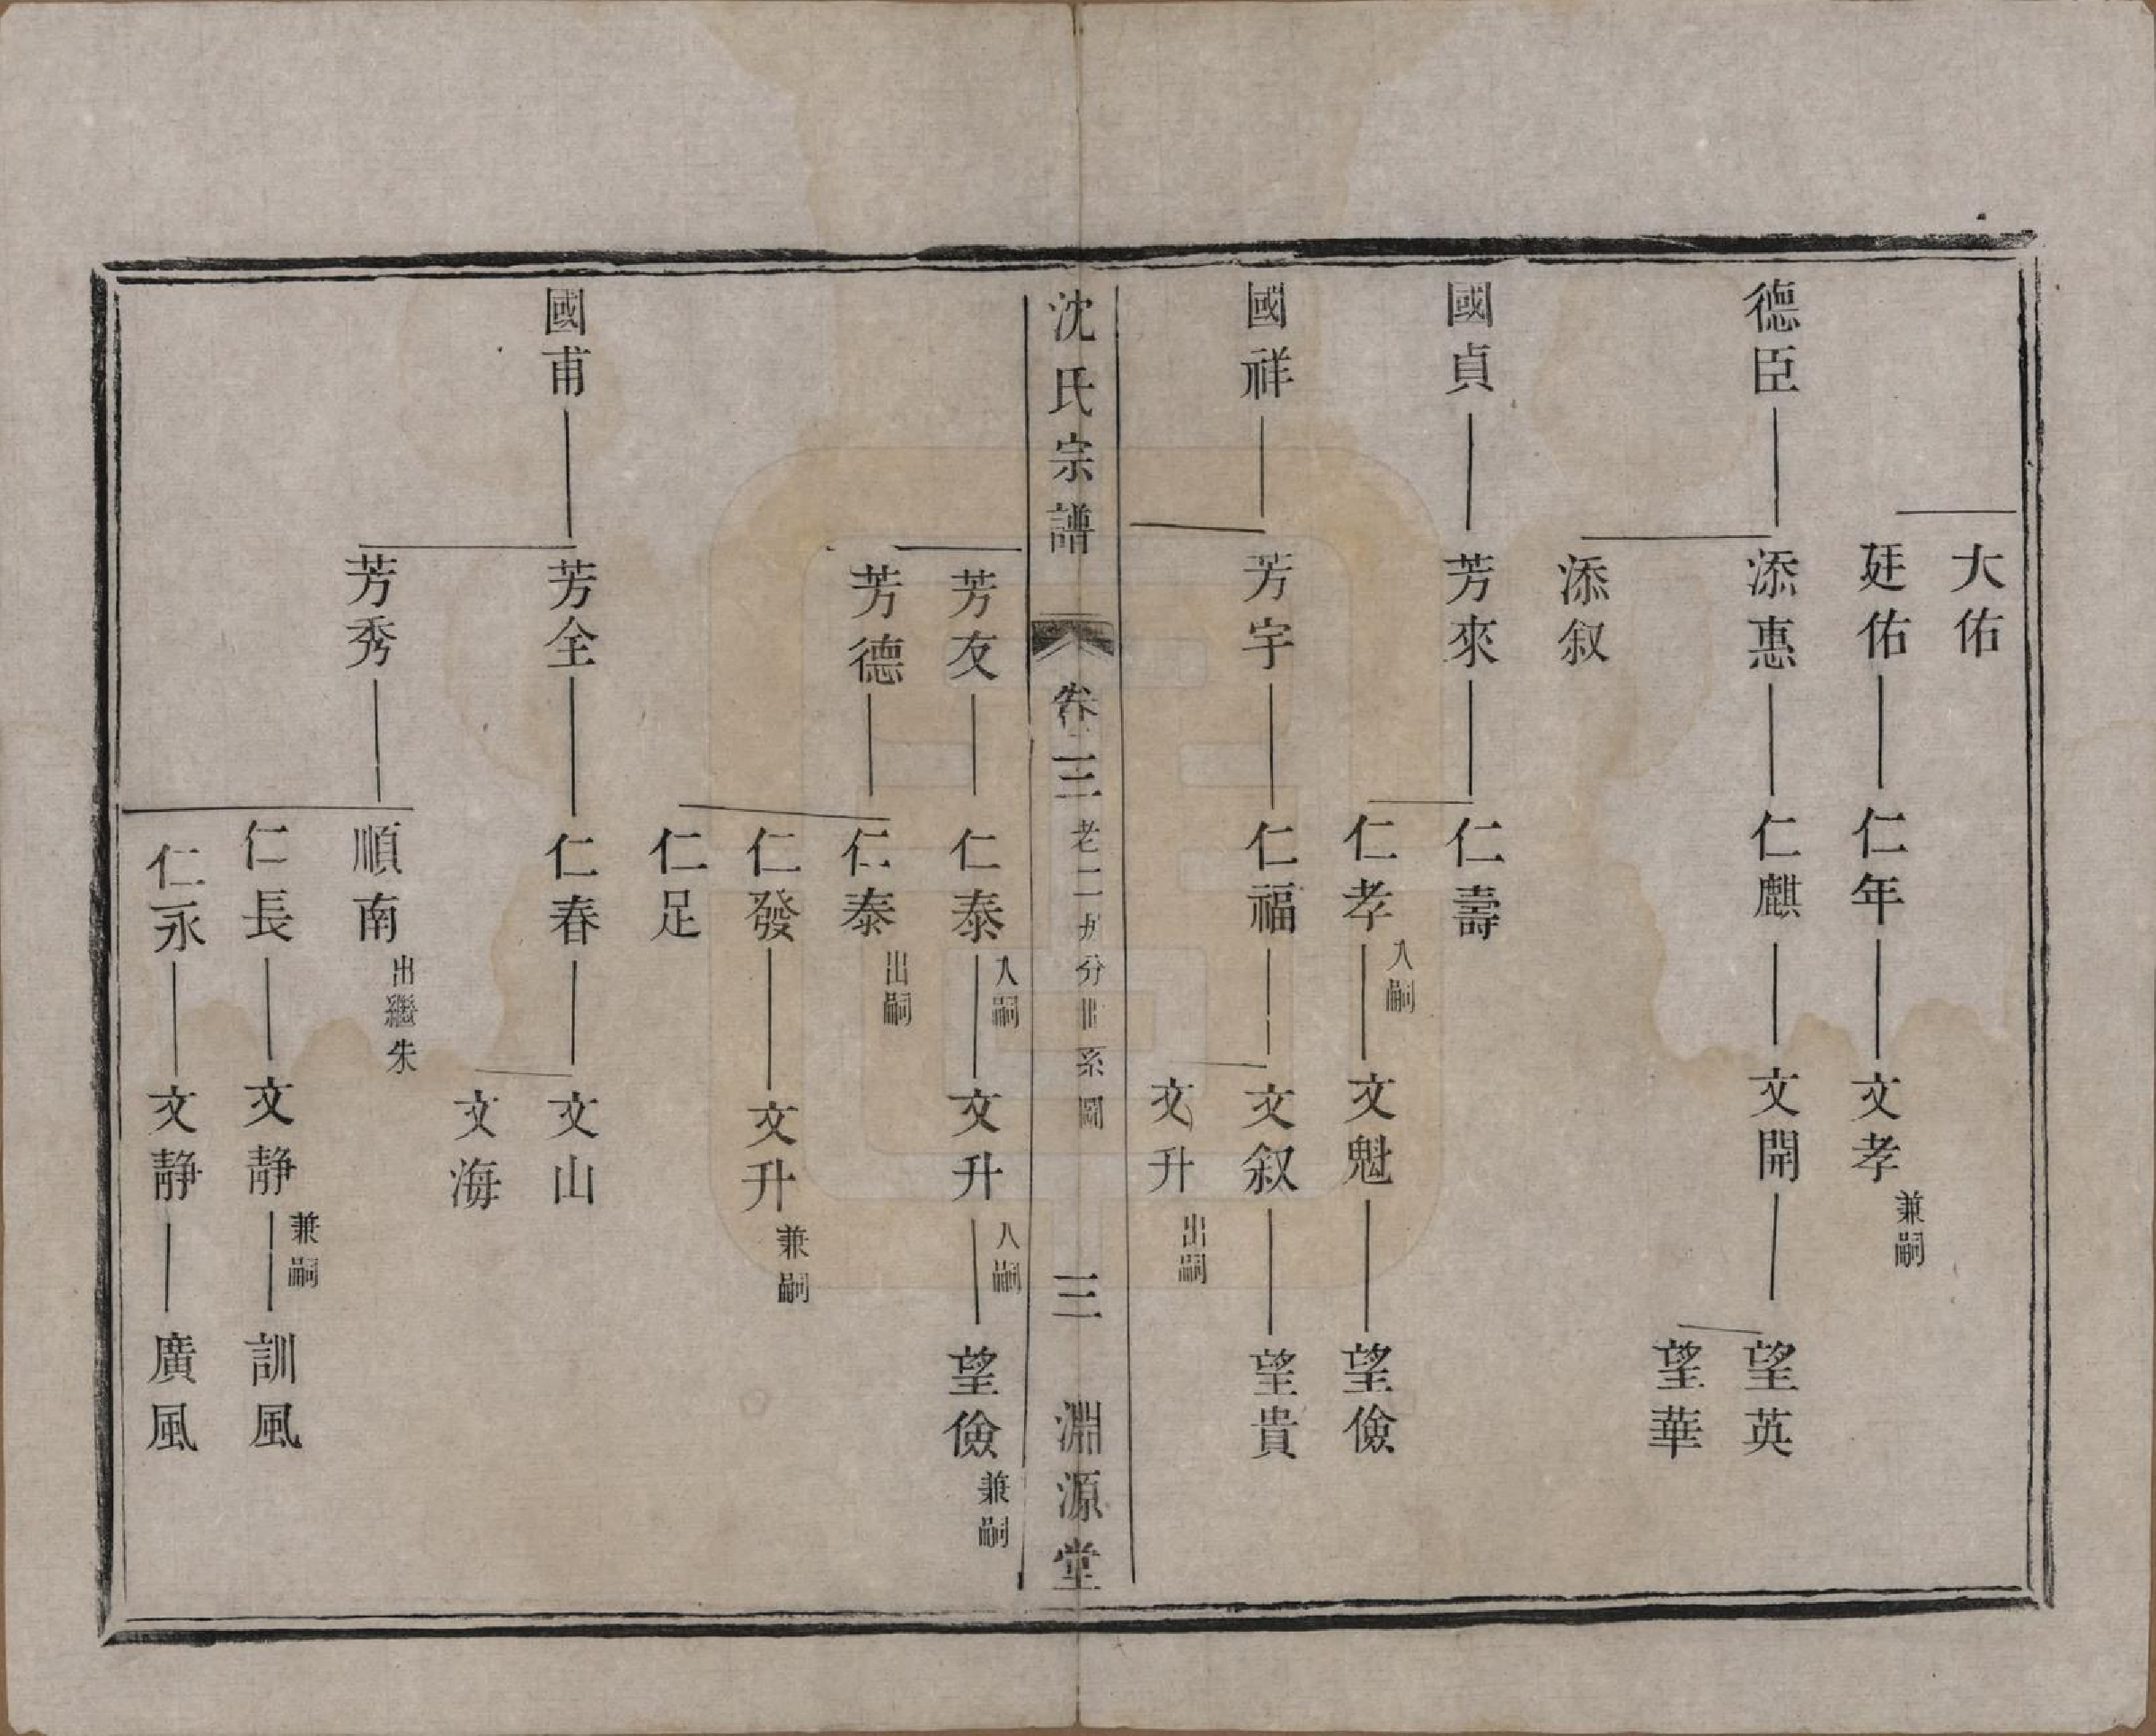 大佑
廷佑 仁年 文孝 兼嗣
德臣 添惠 仁麒 文開 望英
望華
添叙
國貞 芳來 仁壽
仁孝 入嗣 文魁 望儉
國祥 芳宇 仁福 文叙 望貴
文升 出嗣
沈氏宗譜 卷三 老二房分世系圖 三 淵源堂
芳友 仁泰 入嗣 文升 入嗣 望儉 兼嗣
芳德 仁泰 出嗣
仁發 文升 兼嗣
仁足
國甫 芳全 仁春 文山
文海
芳秀 順南 出繼朱
仁長 文靜 兼嗣 訓風
仁永 文靜 廣風